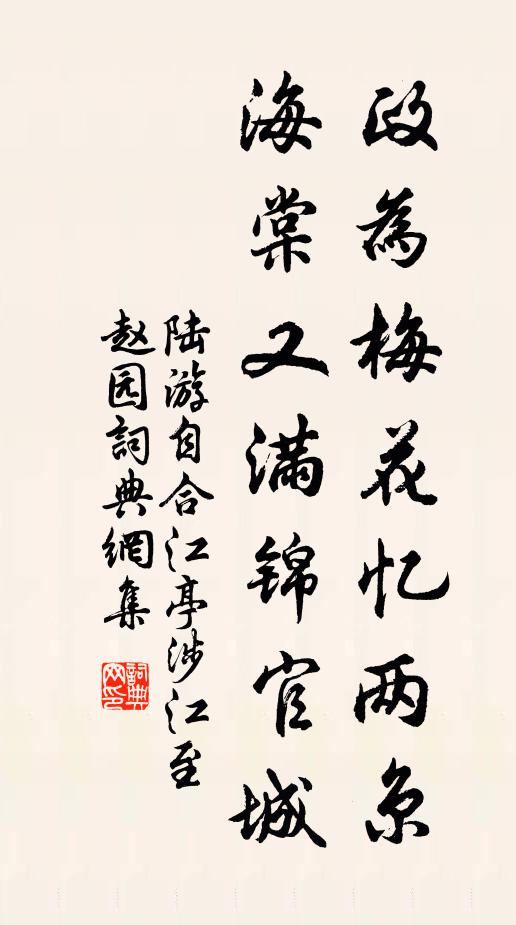 政為梅花忆两京
海棠又满锦官城
陆游自合江亭涉江至
赵园詞典網集
詞典網印